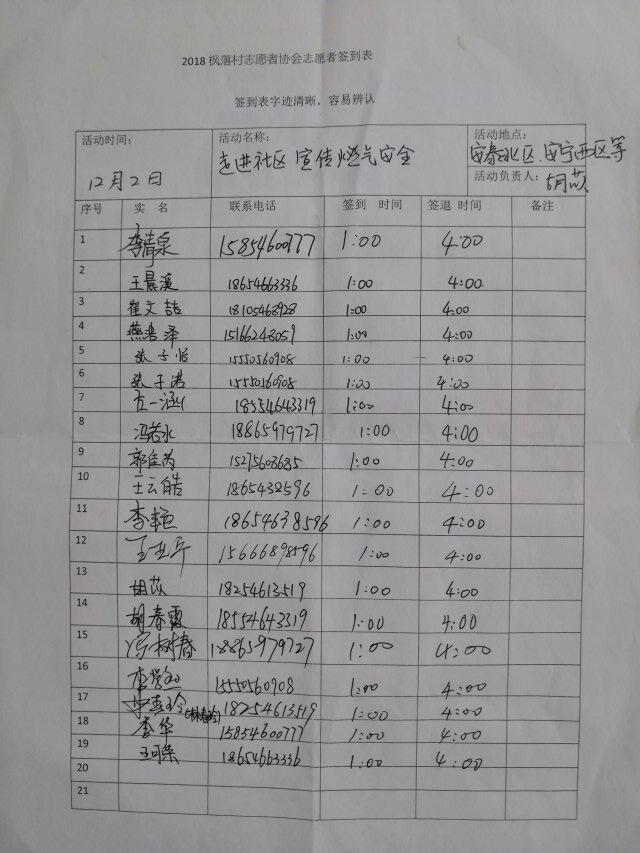 2018 枫落村志愿者协会志愿者签到表
签到表字迹清晰，容易辨认
活动时间： 活动名称： 活动地点：
12月2日 走进社区 宣传燃气安全 安泰北区、安宁西区等
活动负责人：胡苡
序号 实 名 联系电话 签到 时间 签退 时间 备注
1 李清泉 15854600777 1:00 4:00
2 王晨溪 18654663336 1:00 4:00
3 崔文喆 18105468928 1:00 4:00
4 燕浩泽 15166248059 1:00 4:00
5 张子怡 15550560908 1:00 4:00
6 张子诺 15550560908 1:00 4:00
7 方一涵 18554643319 1:00 4:00
8 冯若水 18865979727 1:00 4:00
9 郭佳芮 15275603635 1:00 4:00
10 王云皓 1865438596 1:00 4:00
11 李 18654638596 1:00 4:00
12 王 15666898596 1:00 4:00
13 胡苡 18254613519 1:00 4:00
14 胡春霞 18554643319 1:00 4:00
15 冯树春 18865979727 1:00 4:00
16 李 15550560908 1:00 4:00
17 18254613519 1:00 4:00
18 李华 15854600777 1:00 4:00
19 王荣 18654663336 1:00 4:00
20
21